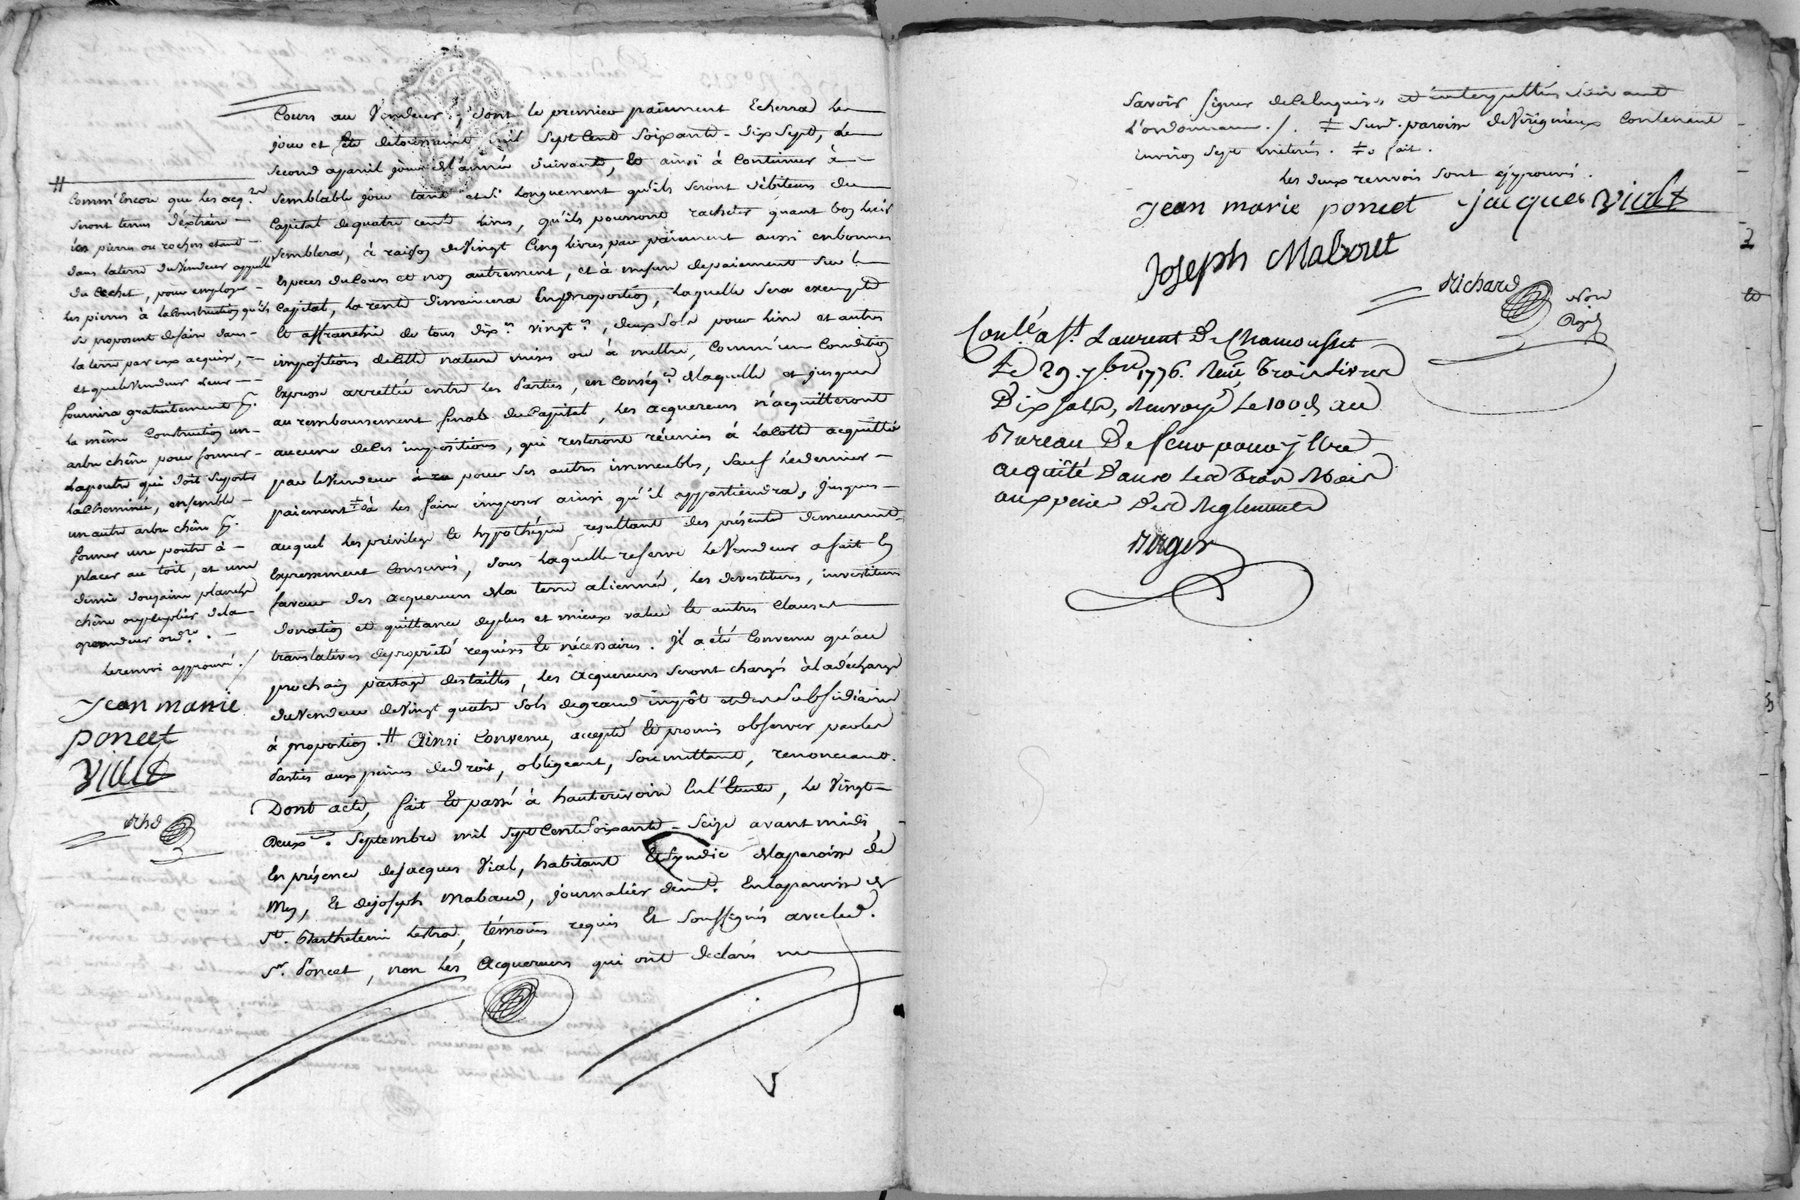 Cours au Vendeur, dont le premier païement Echerra le
jour et fête detoussaint mil Sept Cent Soixante-dix Sept, le
second a pareil jour del'année suivante, et ainsi à Continuer à
semblable jour tant et si longuement qu'ils seront débiteurs du
Capital de quatre cents livres, qu'ils pourront racheter quant bon leur
semblera, à raison de Vingt Cinq livres par païement aussi en bonnes
Especes du Cours et non autrement, et à mesure de paiement sur le
Capital, la rente diminuera En proportion, laquelle sera exempte
et affranchie de tous dix.es vingt.es, deux Sols pour livre et autres
impositions de cette nature mises ou à mettre, Comm'une Condition
Expresse arrettée entre Les Parties, en conség.ce de laquelle et jusques
au remboursement final du Capital, Les acquereurs n'acquitteront
aucune de ces impositions, qui resteront réunies à la Cotte acquittée
par le Vendeur pour ses autres immeubles, sauf le dernier
paiement à les faire imposer ainsi qu'il appartiendra, jusques
auquel Les privilege et hypothéque resultant des présentes demeurent
Expressement Conservés, sous laquelle reserve Le Vendeur a fait En
faveur des acquereurs de la terre aliennée, les devestitures, investitures
donation et quittance de plus et mieux value et autres clauses
translatives de propriété requises et nécessaires. Il a été Convenu qu'au
prochain partage des tailles, Les Acquereurs seront chargés à la décharge
du Vendeur de Vingt quatre Sols de grand impôt et de ses Subsidiaires
à proportion. # Ainsi Convenu, accepté et promis observer par les
Parties aux peines de droit, obligeant, Soumettant, renonceant.
Dont acte, fait et passé à hauterivoire En l'Etude, le Vingt
deux.e Septembre mil sept Cent Soixante-Seize avant midi,
En présence de Jacques Vial, habitant et Syndic de la paroisse de
Mey, et de joseph Mabout, journalier dem.t En la paroisse de
St. Barthelemi Lestra, témoins requis et soussignés avec led.
Sr. Poncet, non Les Acquereurs qui ont declarés ne
# Comm'Encore que Les acq.rs
seront tenus d'extraire
les pierres ou rochers etant
dans la terre du Vendeur appellé
du Cochet, pour employer
les pierres à la Construction qu'ils
se proposent de faire dans
la terre par eux acquise,
et que le Vendeur leur
fournira gratuitement p.
la même Construction un
arbre chêne pour former
la poutre qui doit suporter
la Cheminée, ensemble
un autre arbre chêne p.
former une poutre à
placer au toit, et une
demie douzaine planches
chêne ou peuplier de la
grandeur ord.re.
Le renvoi approuvé./
Jean marie
poncet
Viall
Rhd
Savoir signer de Ce Enquis, et interpellés suivant
L'ordonnance./. ≠ Surd. paroisse de Virigneux Contenant
Environ Sept meterés. ≠ o fait.
Les deux renvois sont approuvé.
Jean marie poncet jacques Viall
Joseph Mabout
Richard
Nore
Royal
Conlé a St. Laurent De Chamousset
Le 29 7bre 1776. Reçu Trois Livres
Dix sols, Renvoyé Le 100e. au
Bureau De feur pour y Etre
acquité Dans Les Trois Mois
aux peines Des Reglements
Berger